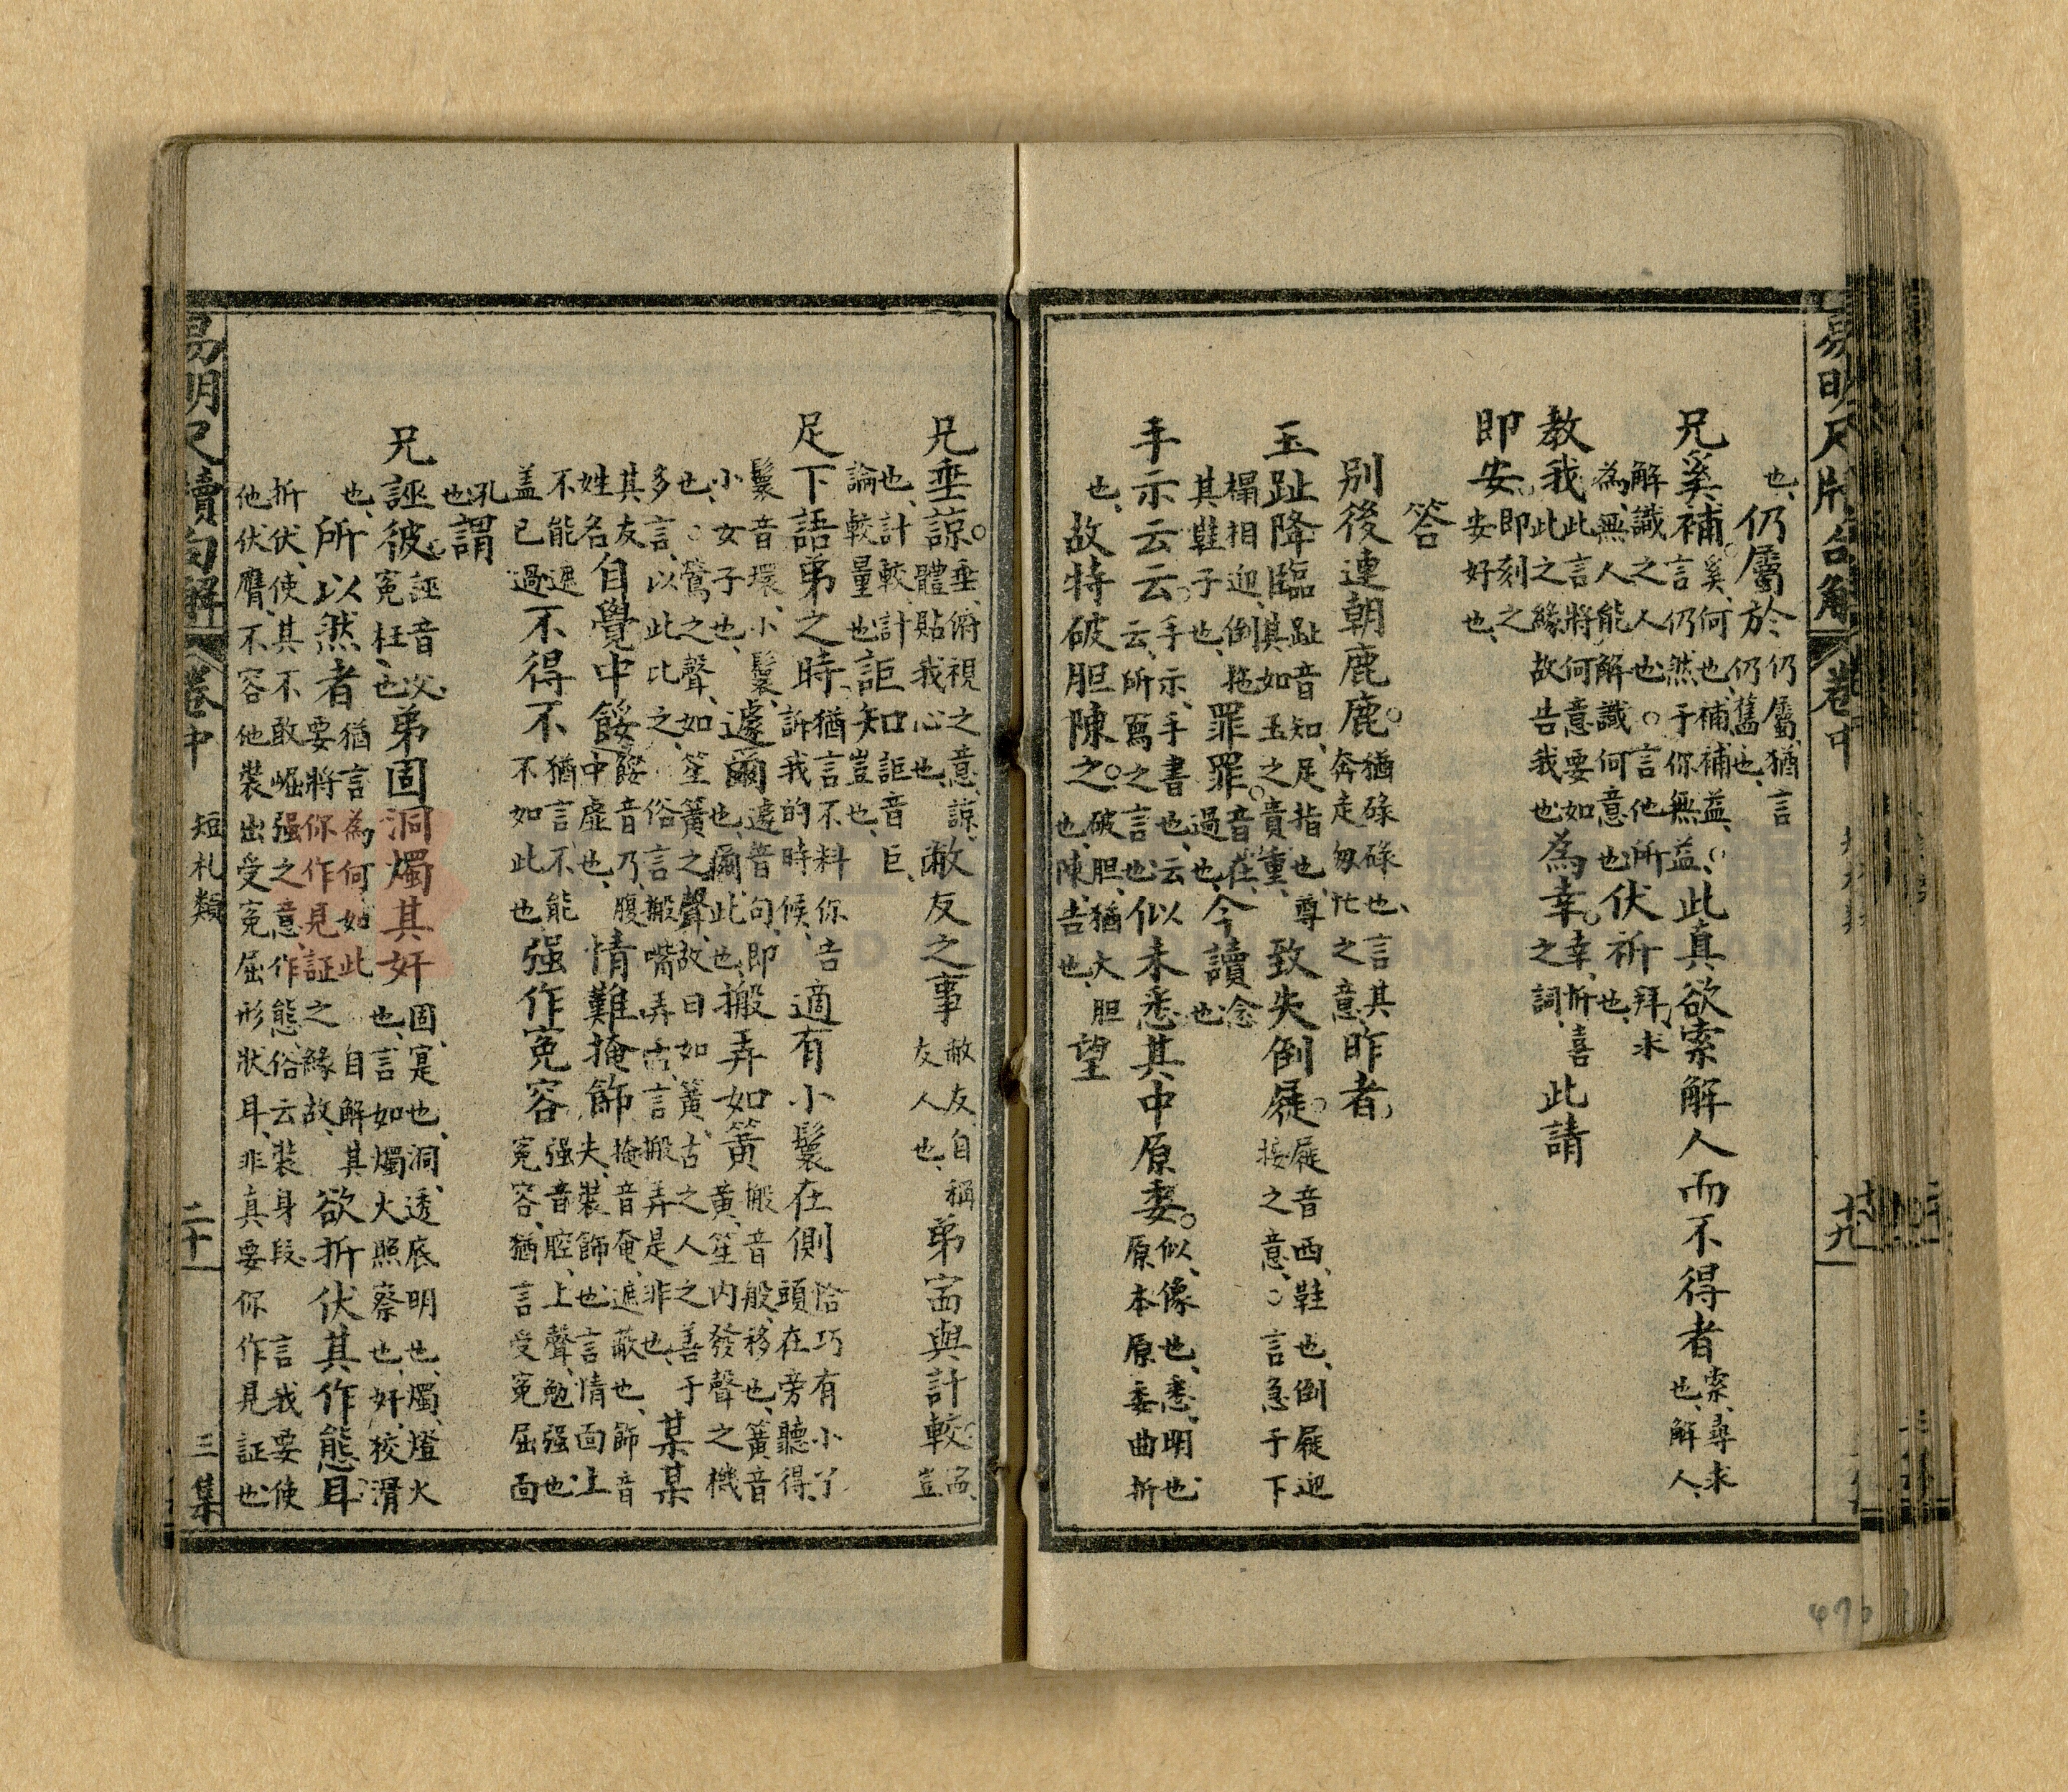 易明尺牘句解 卷中 十九
也、仍屬於仍屬、猶言仍舊也、
兄奚補。奚、何也、補、補益、○言仍然于你無益、此真欲索解人而不得者索、尋求也、解人、
解識之人也、○言他所為、無人能解識何意也、伏祈拜求也、
教我此言將何意要如此之緣故告我也為幸。幸、祈喜之詞、此請
即安。即刻之安好也、
答
别後連朝鹿鹿。猶碌碌也、言其奔走匆忙之意、昨者、
玉趾降臨趾音知、足指也、尊其如玉之責重、致失倒屣。屣音西、鞋也、倒屣迎接之意、○言急于下
榻相迎、倒拖其鞋子也、罪罪。音在、過也、今讀念也
手示云云。手示、手書也、云云、所寫之言也似未悉其中原委。似、像也、悉、明也、原本原委曲折
也、故特破胆陳之。破胆、猶大胆也、陳、告也、望
兄垂諒。垂、俯視之意、諒、體貼我心也、敝友之事敝友、自稱友人也、弟啚與計較。啚、豈
也、計較、計論較量也、詎知詎音巨、豈也、
足下語弟之時、猶言不料你告訴我的時候、適有小鬟在側恰巧有小丫頭在旁聽得、
鬟音環、小鬟、小女子也、遽爾遽音句、即也、爾、此也、搬弄如簧搬音般、移也、簧音黃、笙内發聲之機
也、○鶯之聲、如笙簧之聲、故曰如簧、古之人之善于多言、以此比之、俗言搬嘴弄舌、言搬弄是非也、某某
其友姓名自覺中餒餒音乃、腹中虛也、情難掩飾掩音奄、遮蔽也、飾音夫、裝飾也、言情面上
不能遮盖已過不得不猶言不能不如此也、强作冤容强音腔、上聲、勉强也、冤容、猶言受冤屈面
孔也、謂
兄誣彼。誣音父、冤枉也、弟固洞燭其奸固、寔也、洞、透底明也、燭、燈火也、言如燭火照察也、奸、狡滑
也、所以然者猶言為何如此自解其要將你作見証之緣故、欲折伏其作態耳
折伏、使其不敢崛强之意、作態、俗云裝身段、言我要使他伏膺、不容他裝出受冤屈形狀耳、非真要你作見証也
易明尺牘句解 卷中 短札類 二十一 三集